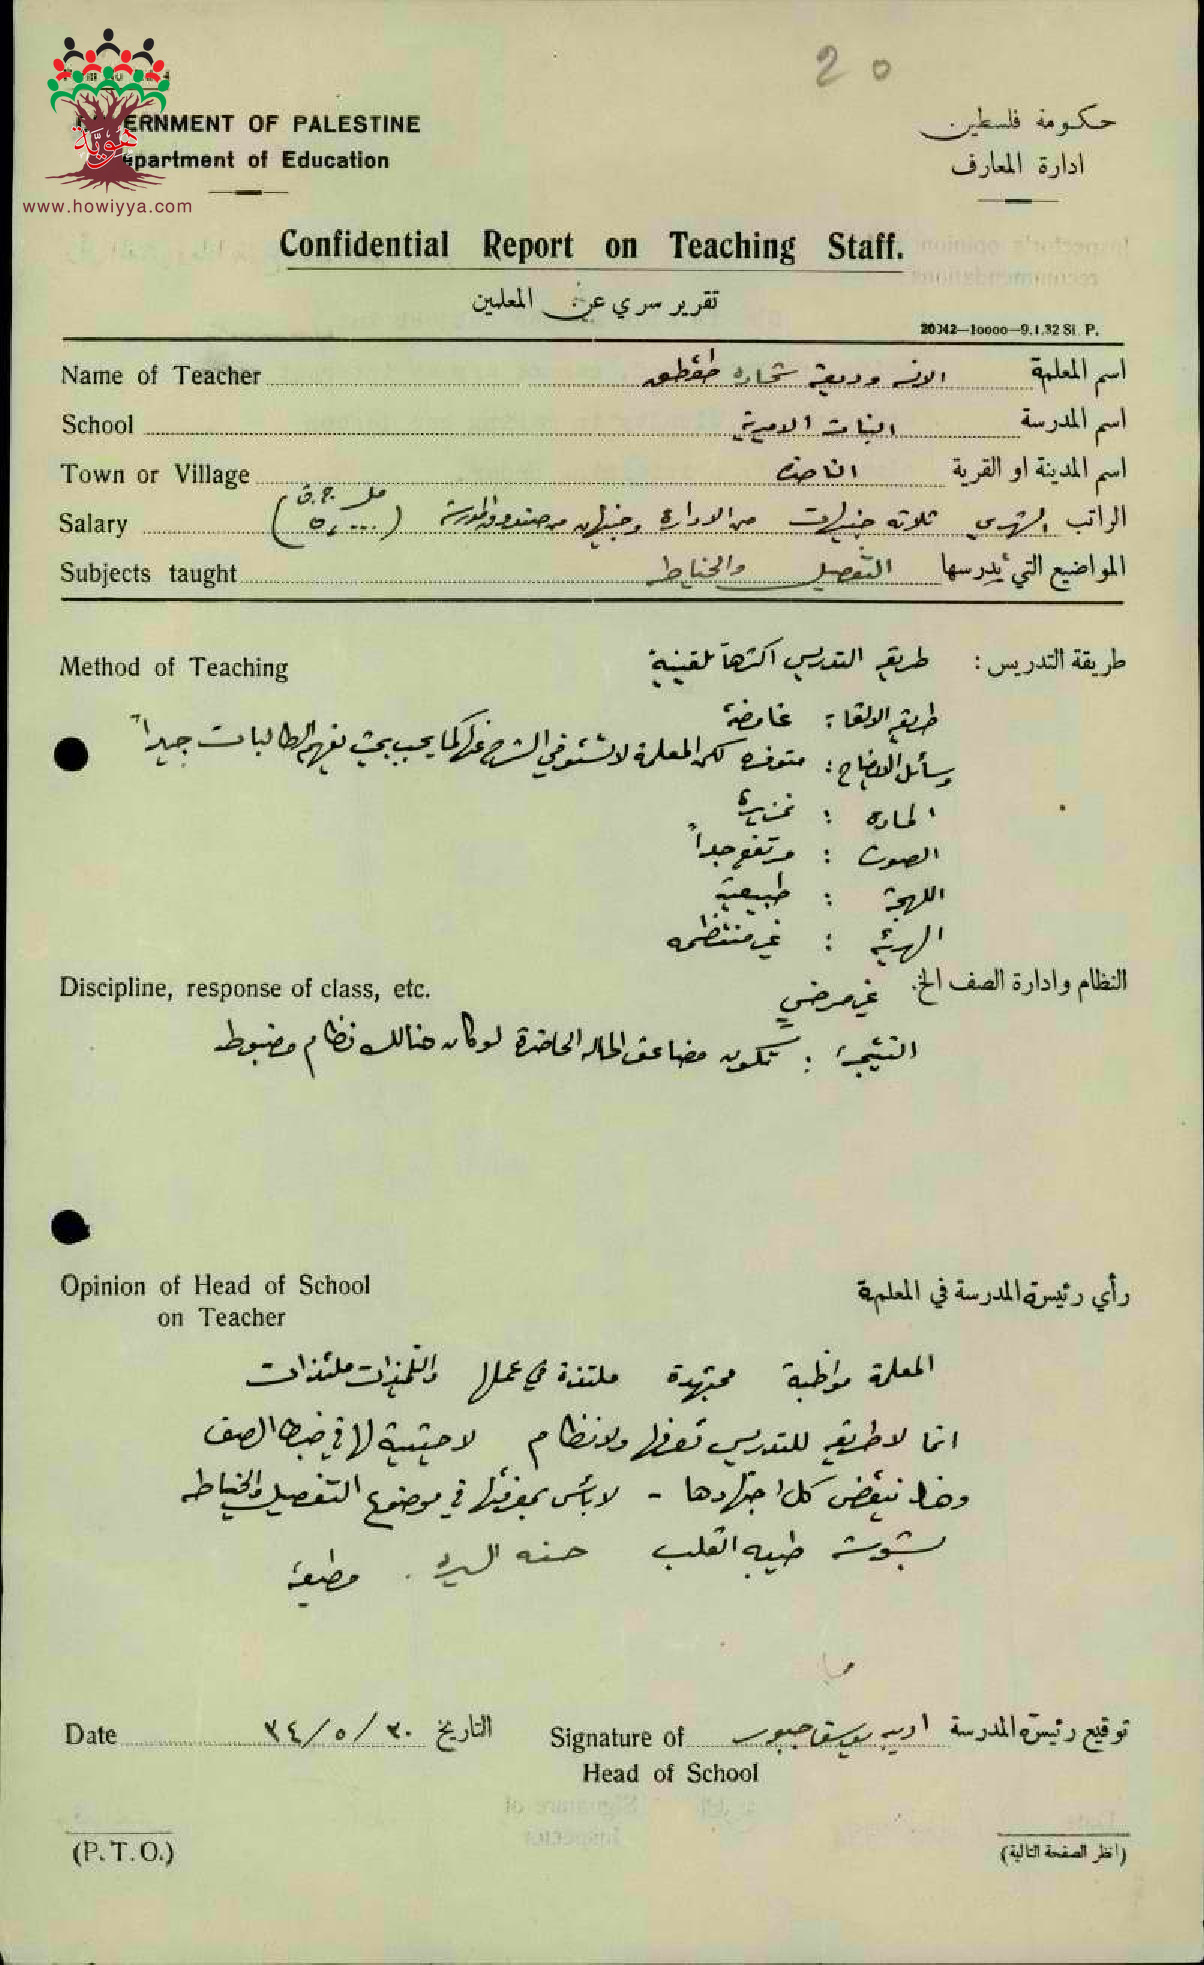 20
GOVERNMENT OF PALESTINE
Department of Education
حكومة فلسطين
ادارة المعارف
هوية
www.howiyya.com
Confidential Report on Teaching Staff.
تقرير سري عن المعلمين
20042—10000—9.1.32 Sl. P.
Name of Teacher الانسه وديعة شحاده اسم المعلمة
School البنات الاميرية اسم المدرسة
Town or Village الناصره اسم المدينة او القرية
Salary الراتب الشهري ثلاثة جنيهات من الادارة وجنيهان من صندوق المدرسة (٥٫٠٠٠) مل ج.ف
Subjects taught التفصيل والخياطه المواضيع التي يدرسها
Method of Teaching طريقة التدريس : طريقة التدريس اكثرها تلقينية
طريقة الالقاء : غامضة
وسائل الايضاح : متوفره لكن المعلمة لا تستوفي الشرح عنها كما يجب بحيث تفهم الطالبات جيداً
المادة : غزيرة
الصوت : مرتفع جداً
اللهجة : طبيعية
الهيئة : غير منتظمه
Discipline, response of class, etc. النظام وادارة الصف الخ. غير مرضي
النتيجة : تكون مضاعف الحاله الحاضرة لو كان هنالك نظام مضبوط
Opinion of Head of School
on Teacher
رأي رئيسة المدرسة في المعلمة
المعلمة مواظبة مجتهدة ملتذة في عملها والتلميذات ملتذات
انما لا طريقة للتدريس تعرفها ولا نظام لا حيثية لها في ضبط الصف
وهذا ينقض كل اجتهادها - لا بأس بمعرفتها في موضوع التفصيل والخياطه
بشوشة طيبة القلب حسنة السيرة . مطيعة
Date ٣٠/٥/٣٤ التاريخ
Signature of اديبه يوسف جبور توقيع رئيسة المدرسة
Head of School
(P.T.O.)
(انظر الصفحة التالية)